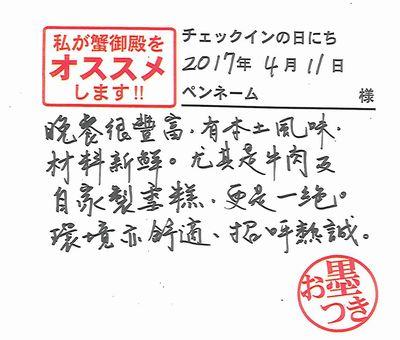 私が蟹御殿を
オススメ
します!!
チェックインの日にち
2017年 4月 11日
ペンネーム 様
晚餐很豐富,有本土風味,
材料新鮮。尤其是牛肉及
自家製蛋糕,更是一絕。
環境亦舒適、招呼熱誠。
お墨つき